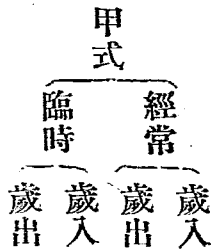 甲式
經常
臨時
歲入
歲出
歲入
歲出